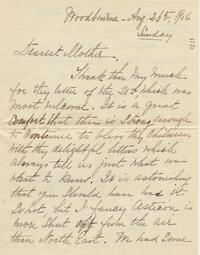 Woodburne - Aug. 26th, 1906
Sunday
Dearest Mother,
Thank thee very much
for thy letter of the 21st, which was
most welcome. It is a great
comfort that there is strength enough
to continue to bless thy children
with the delightful letters which
always tell us just what we
want to know. It is astonishing
that you should have had it
so hot but I fancy
is
more shut off from the air
than North East. We had some